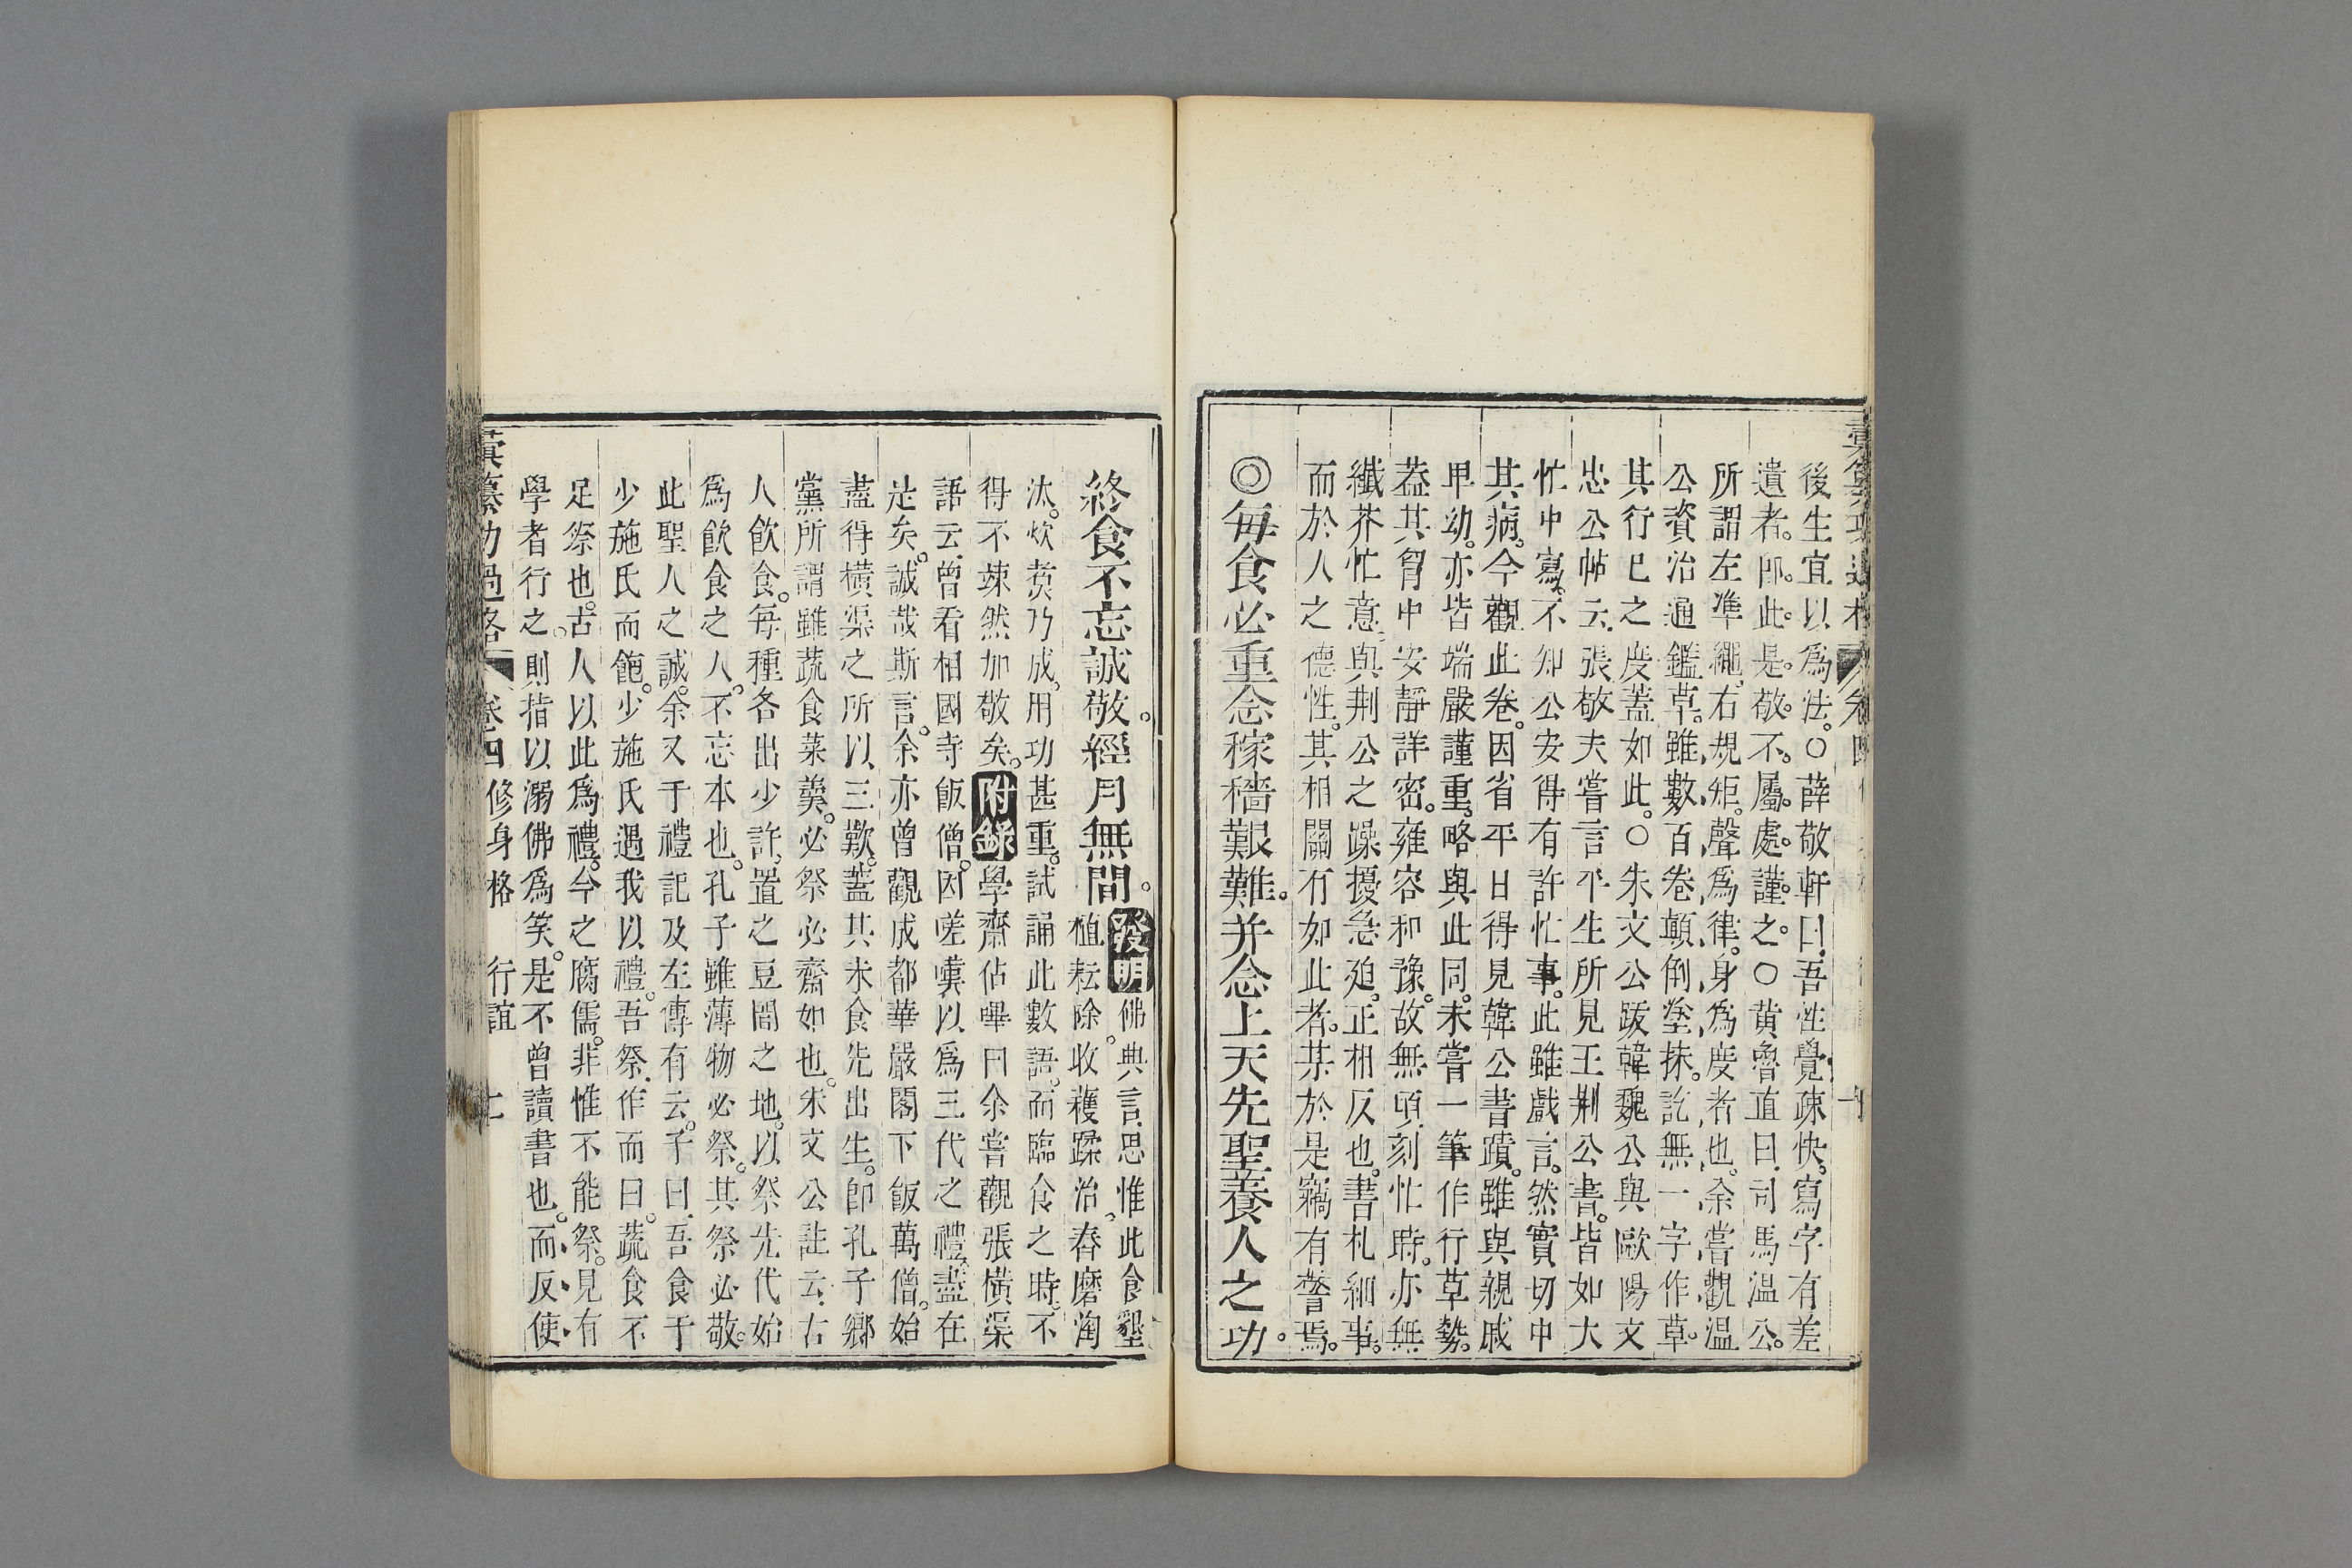 後生宜以爲法。○薛敬軒曰吾性覺疎快。寫字有差
遺者。卽此。是敬不屬處。謹之。○黃魯直曰司馬溫公。
所謂左準繩。右規矩。聲爲律。身爲度者也。余嘗觀溫
公資治通鑑草。雖數百卷顛倒塗抹。訖無一字作草。
其行巳之度蓋如此。○朱文公跋韓魏公與歐陽文
忠公帖云。張敬夫嘗言平生所見王荆公書。皆如大
忙中寫。不知公安得有許忙事。此雖戲言。然實切中
其病。今觀此卷。因省平日得見韓公書蹟。雖與親戚
卑幼。亦皆端嚴謹重。略與此同。未嘗一筆作行草勢。
葢其胷中安靜詳密。雍容和豫。故無頃刻忙時。亦無
纖芥忙意。與荆公之躁擾急廹。正相反也。書札細事。
而於人之德性。其相關有如此者。某於是竊有警焉。
◎每食必重念稼穡艱難。并念上天先聖養人之功。
終食不忘誠敬。經月無間。發明佛典言。思惟此食墾
植耘除。收穫蹂治。舂磨淘
汰。炊煑乃成。用功甚重。試誦此數語。而臨食之時。不
得不竦然加敬矣。附錄學齋佔畢曰余嘗觀張橫渠
語云。曾看相國寺飯僧。因嗟嘆以爲三代之禮。盡在
是矣。誠哉斯言。余亦曾觀成都華嚴閣下飯萬僧。始
盡得橫渠之所以三歎。蓋其未食先出生。卽孔子鄉
黨所謂雖蔬食菜羹。必祭必齋如也。朱文公註云。古
人飲食。每種各出少許。置之豆間之地。以祭先代始
爲飲食之人。不忘本也。孔子雖薄物必祭。其祭必敬。
此聖人之誠。余又于禮記及左傳有云。子曰。吾食于
少施氏而飽。少施氏遇我以禮。吾祭。作而曰。蔬食不
足祭也。古人以此爲禮。今之腐儒。非惟不能祭。見有
學者行之。則指以溺佛爲笑。是不曾讀書也。而反使
彚纂功過格 卷四 修身格 行誼